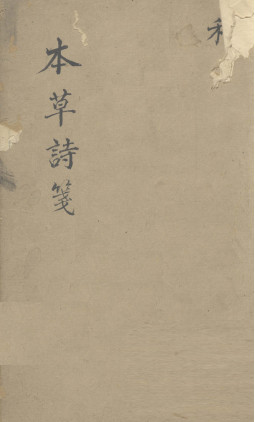 本草詩箋